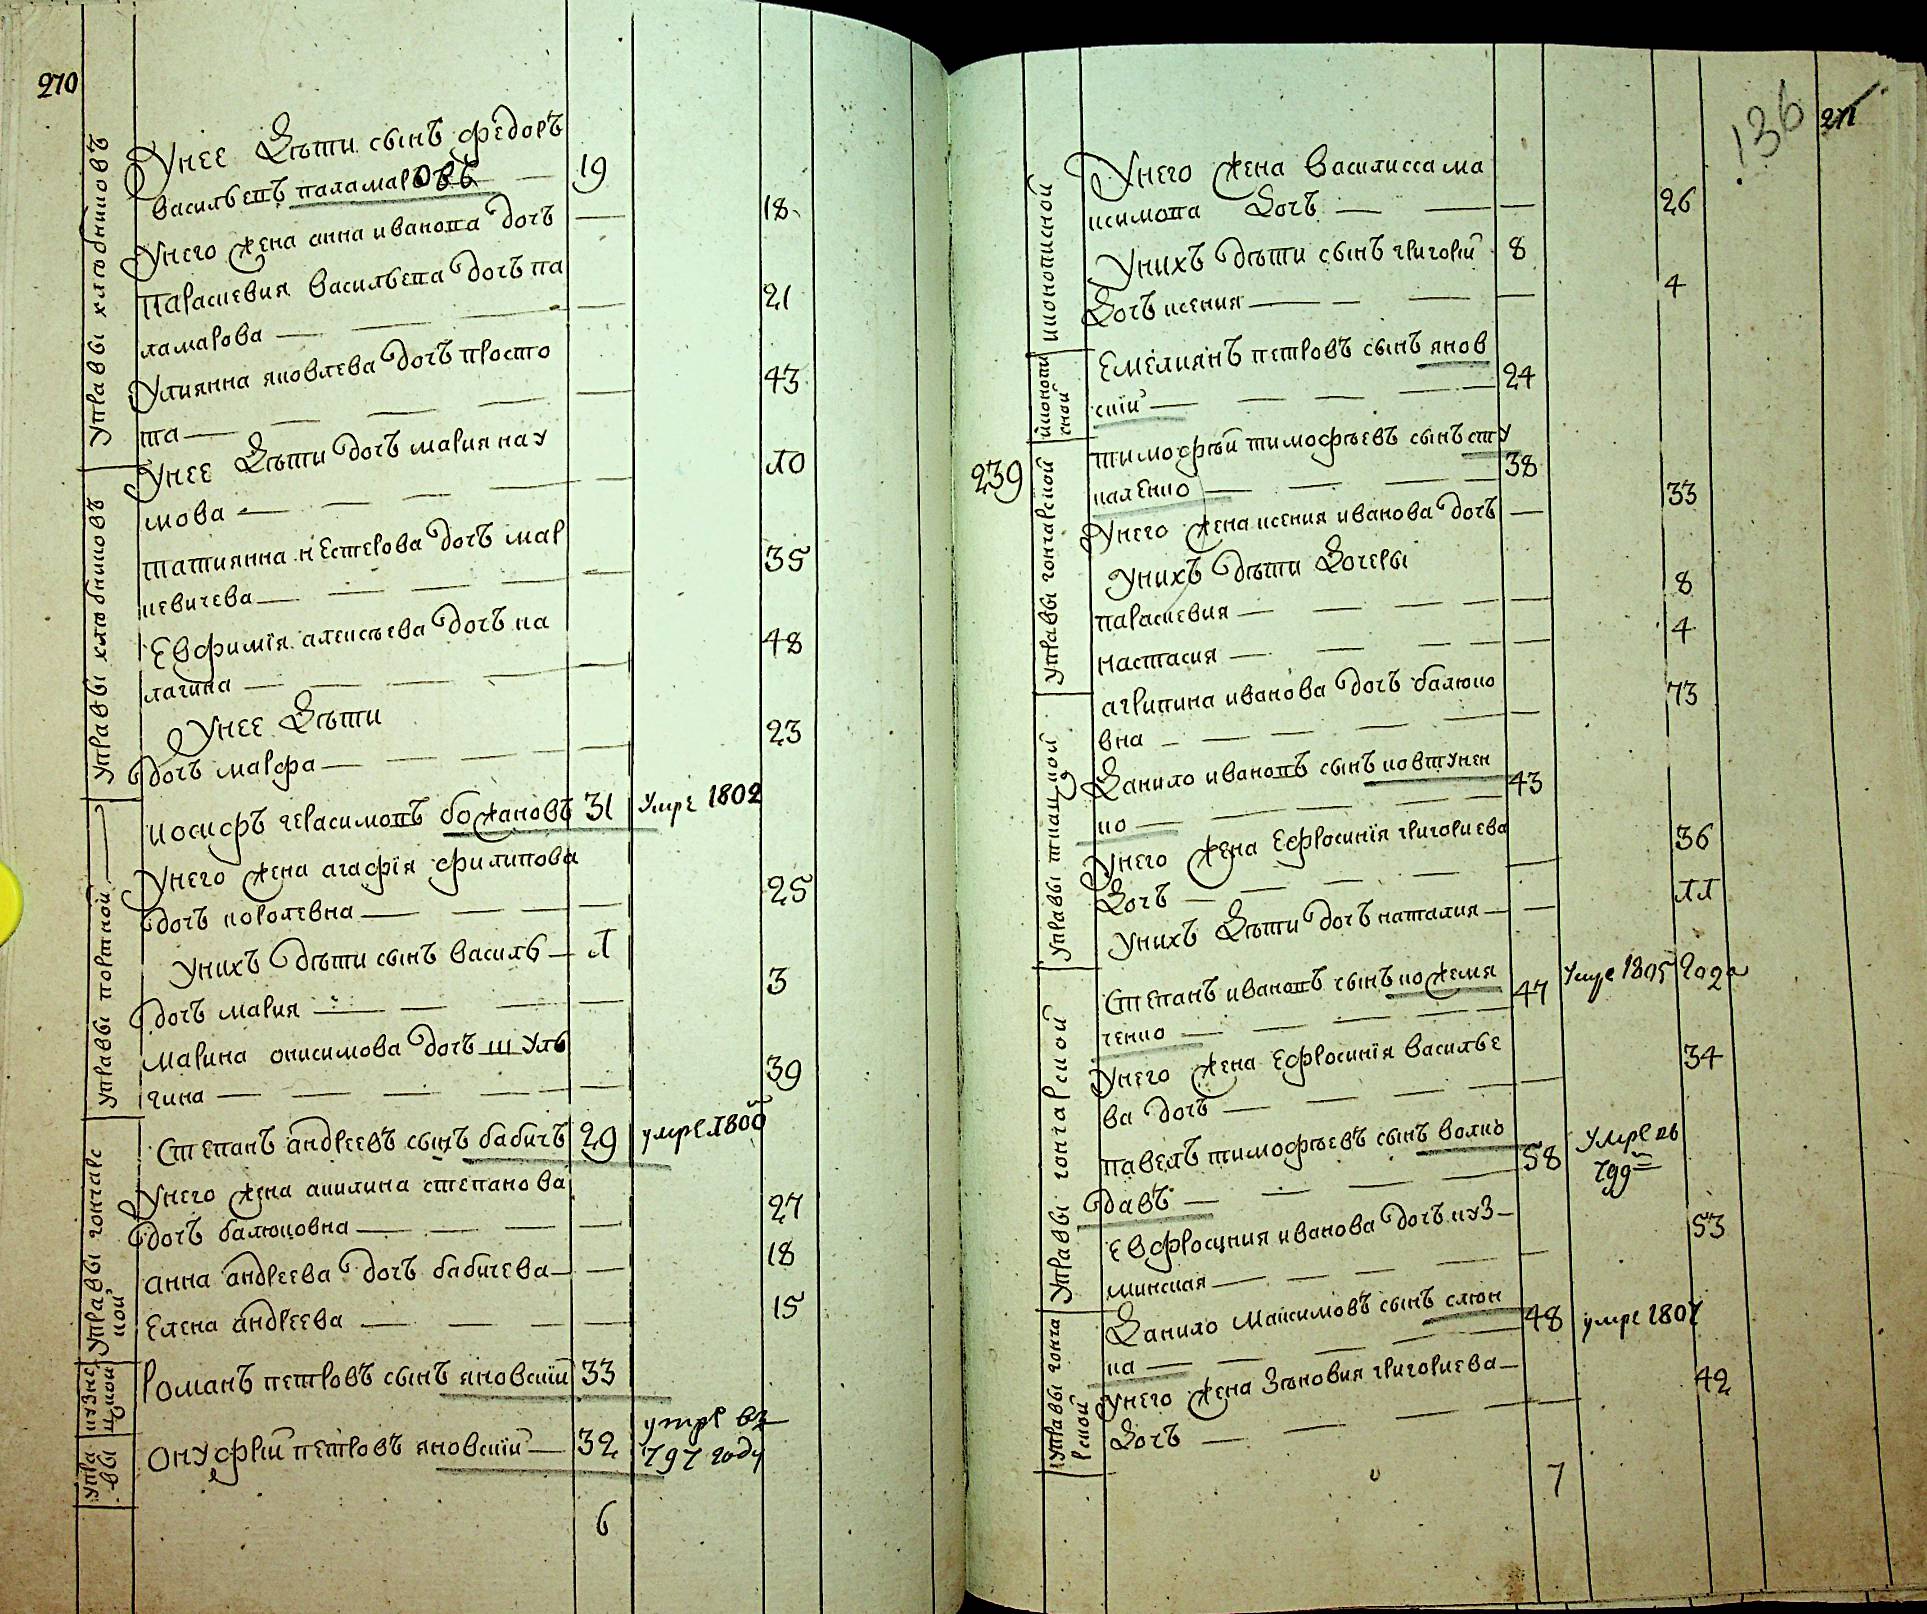 270
Управы хлѣбниковъ
Унее Дѣти сынъ федоръ
васильевъ паламаровъ — 19
Унего жена анна иванова дочь — 18
параскевия васильева дочь па
ламарова — 21
Улиянна яковлева дочь просто
та — 43
Унее Дѣти дочь мария нау
мова — 10
Управы хлѣбниковъ
татиянна нестерова дочь мар
кевичева — 35
Евфимїя алексѣева дочь ка
лагина — 48
Унее Дѣти
дочь марфа — 23
Управы портной
иосифъ герасимовъ божановъ 31 Умре 1802
Унего жена агафїя филипова
дочь королевна — 25
Унихъ дѣти сынъ василь — 1
дочь мария — 3
марина онисимова дочь шуль
гина — 39
Управы гончарс
кой
Степанъ андреевъ сынъ бабичъ 29 умре 1800
Унего жена акилина степанова
дочь балюковна — 27
анна андреева дочь бабичева — 18
Елена андреева — 15
кузне
цкой
Романъ петровъ сынъ яновскїй 33
Упра
вы
онуфрїй петровъ яновскїй — 32 умре въ
797 году
6
136 271
иконописной
Унего жена василисса ма
ксимова Дочь — 26
Унихъ дѣти сынъ григорїй 8
Дочь ксения — 4
йконопи
сной
Емелиянъ петровъ сынъ янов
скїй — 24
239
Управы гончарской
тимофѣй тимофѣевъ сынъ сту
каленко — 38
Унего жена ксения иванова дочь — 33
Унихъ дѣти Дочеры
параскевия — 8
настасия — 4
Управы ткацкой
агрипина иванова дочь балюко
вна — 73
Данило ивановъ сынъ ковтунен
ко — 43
Унего жена Ефросинїя григориева
Дочь — 36
Унихъ Дѣти дочь наталия — 11
Управы гончарской
Степанъ ивановъ сынъ кожемя
ченко — 47 Умре 1805 Года
Унего жена Ефросинїя василье
ва дочь — 34
павелъ тимофѣевъ сынъ волко
давъ — 58 Умре въ
799м
Евфросиния иванова дочь куз
минская — 53
Управы гонча
рской
Данило Максимовъ сынъ слюн
ка — 48 умре 1807
Унего жена Зѣновия григориева
Дочь — 42
7